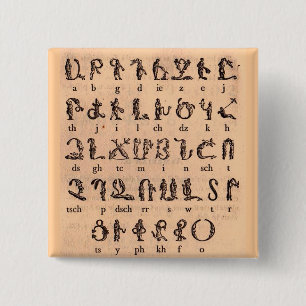 Ա Բ Գ Դ Ե Զ Է Ը
a b g d ie z e j
Թ Ժ Ի Լ Խ Ծ Կ Հ
th j i l ch dz k h
Ձ Ղ Ճ Մ Յ Ն Շ Ո
ds gh tc m i n sch t
Չ Պ Ջ Ռ Ս Վ Տ Ր
tsch p dsch rr s w t r
Ց Ւ Փ Ք Ֆ Օ
ts y ph kh f o